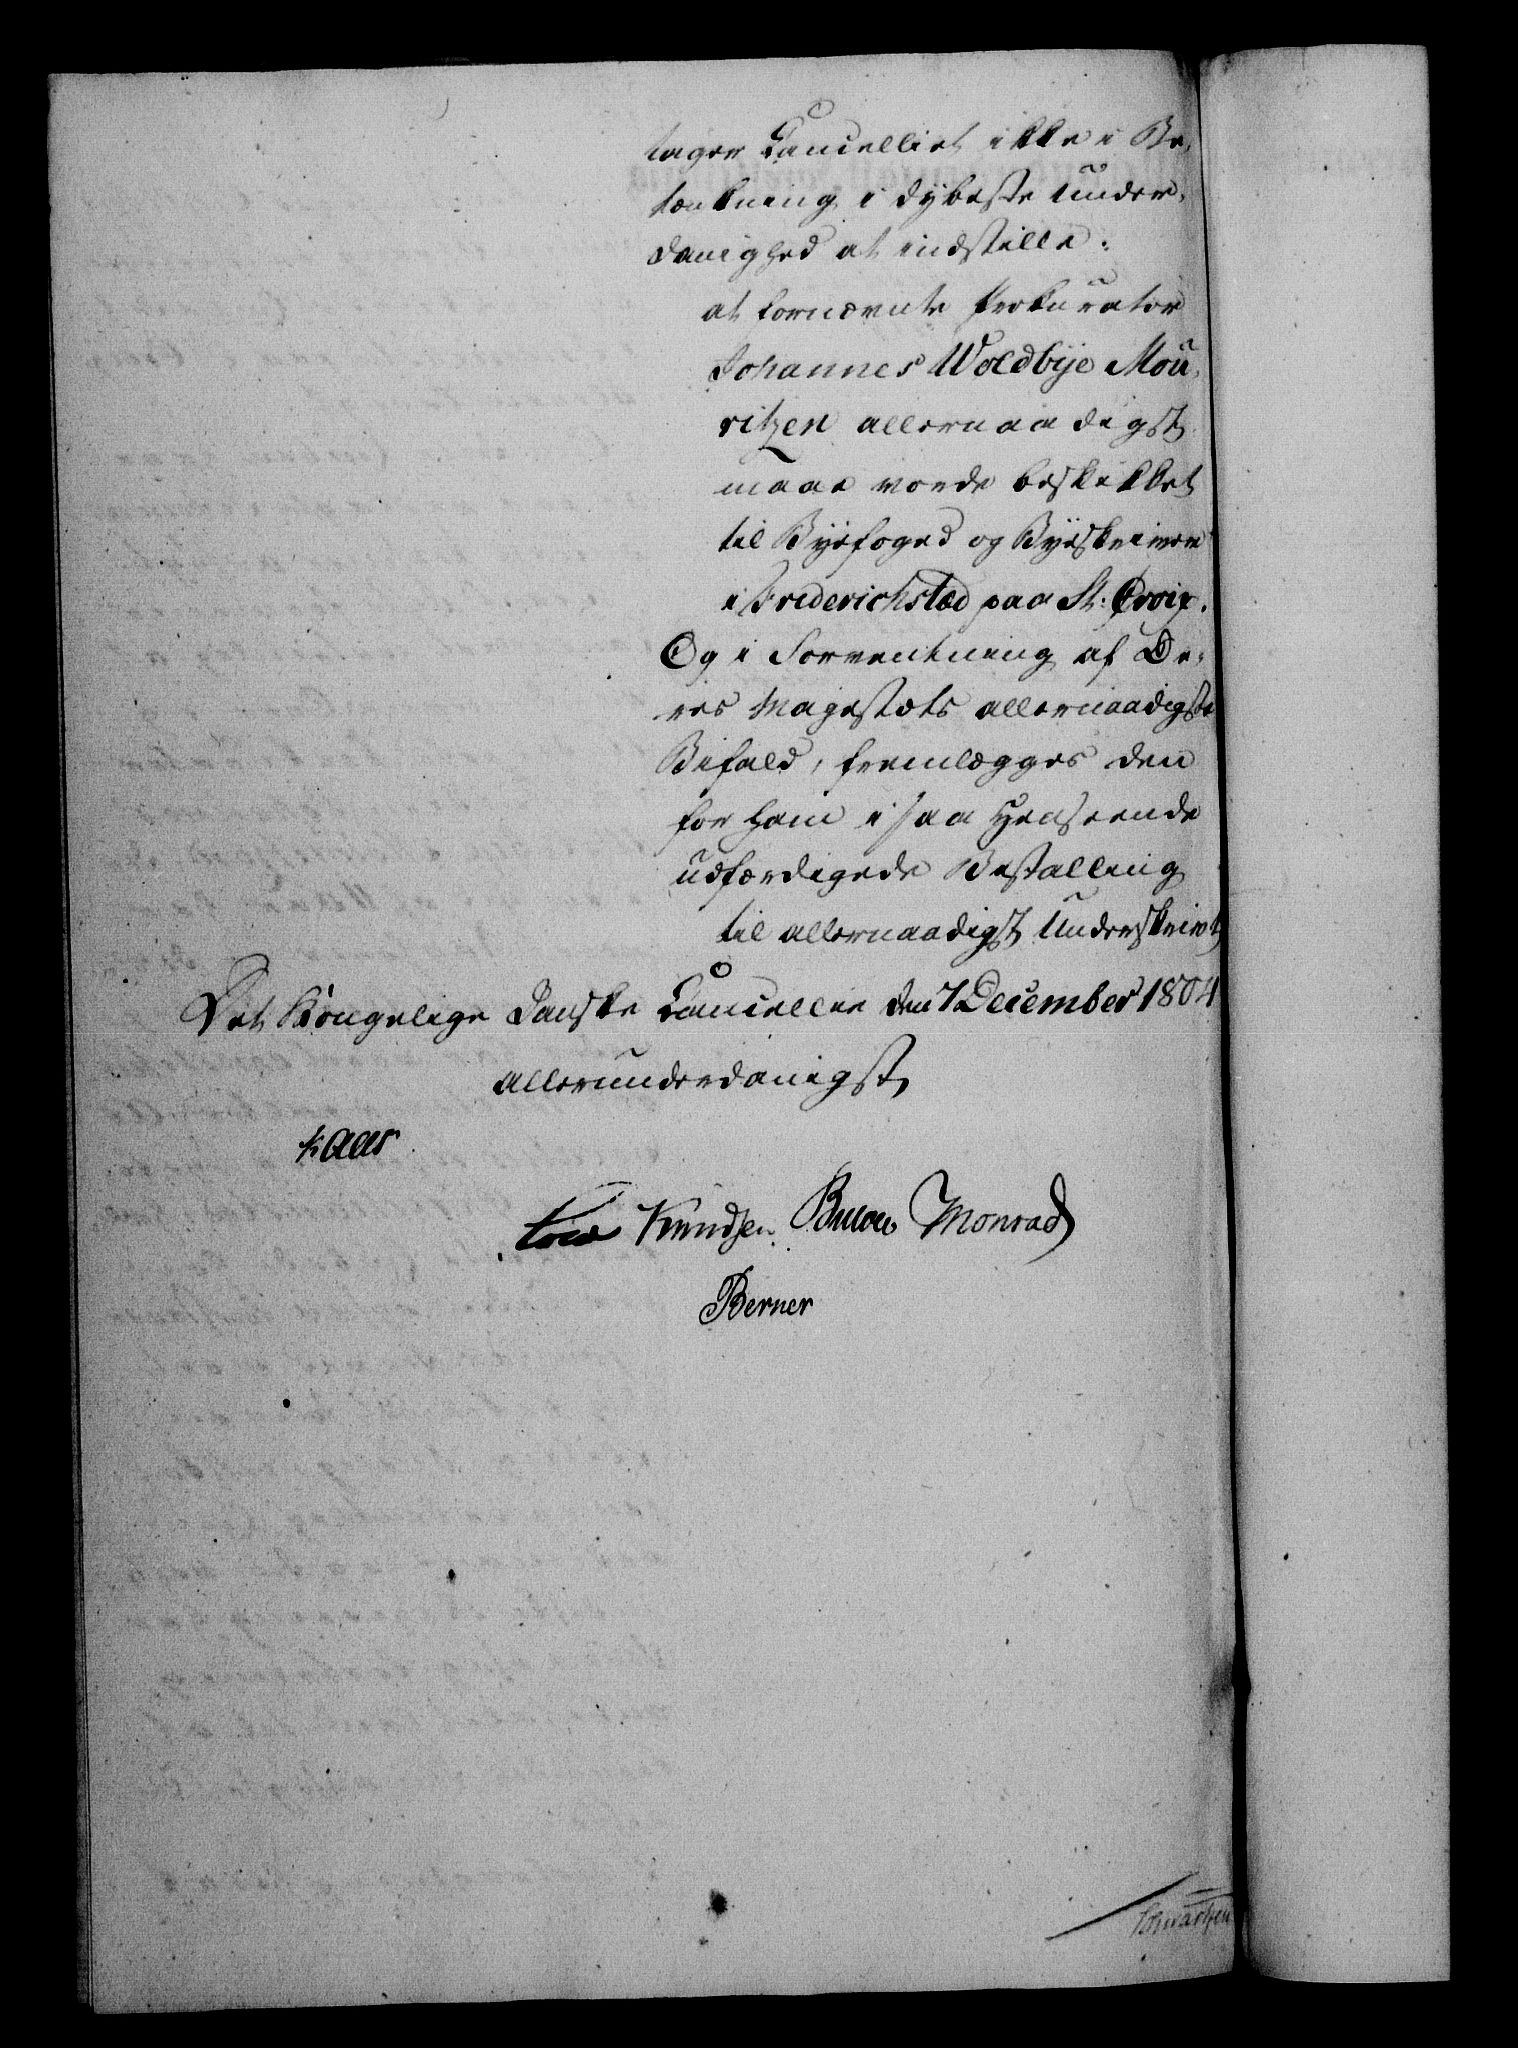 tager Cancelliet ikke i Be-
tænkning i dybeste Under-
danighed at indstille:
at fornævnte Prokurator
Johannes Woldbye Mou-
ritzen allernaadigst
maae vorde beskikket
til Byefoged og Byeskriver
i Friderichstæd paa St: Croix.
Og i Forventning af De-
res Majestæts allernaadigste
Bifald, fremlægges den
for ham i saa Henseende
udfærdigede Bestalling
til allernaadigst Underskrivt
Det Kongelige Danske Cancellie den 7 December 1804
allerunderdanigst
Kaas
Knudsen Bülow Monrad
Berner
Schwartzen